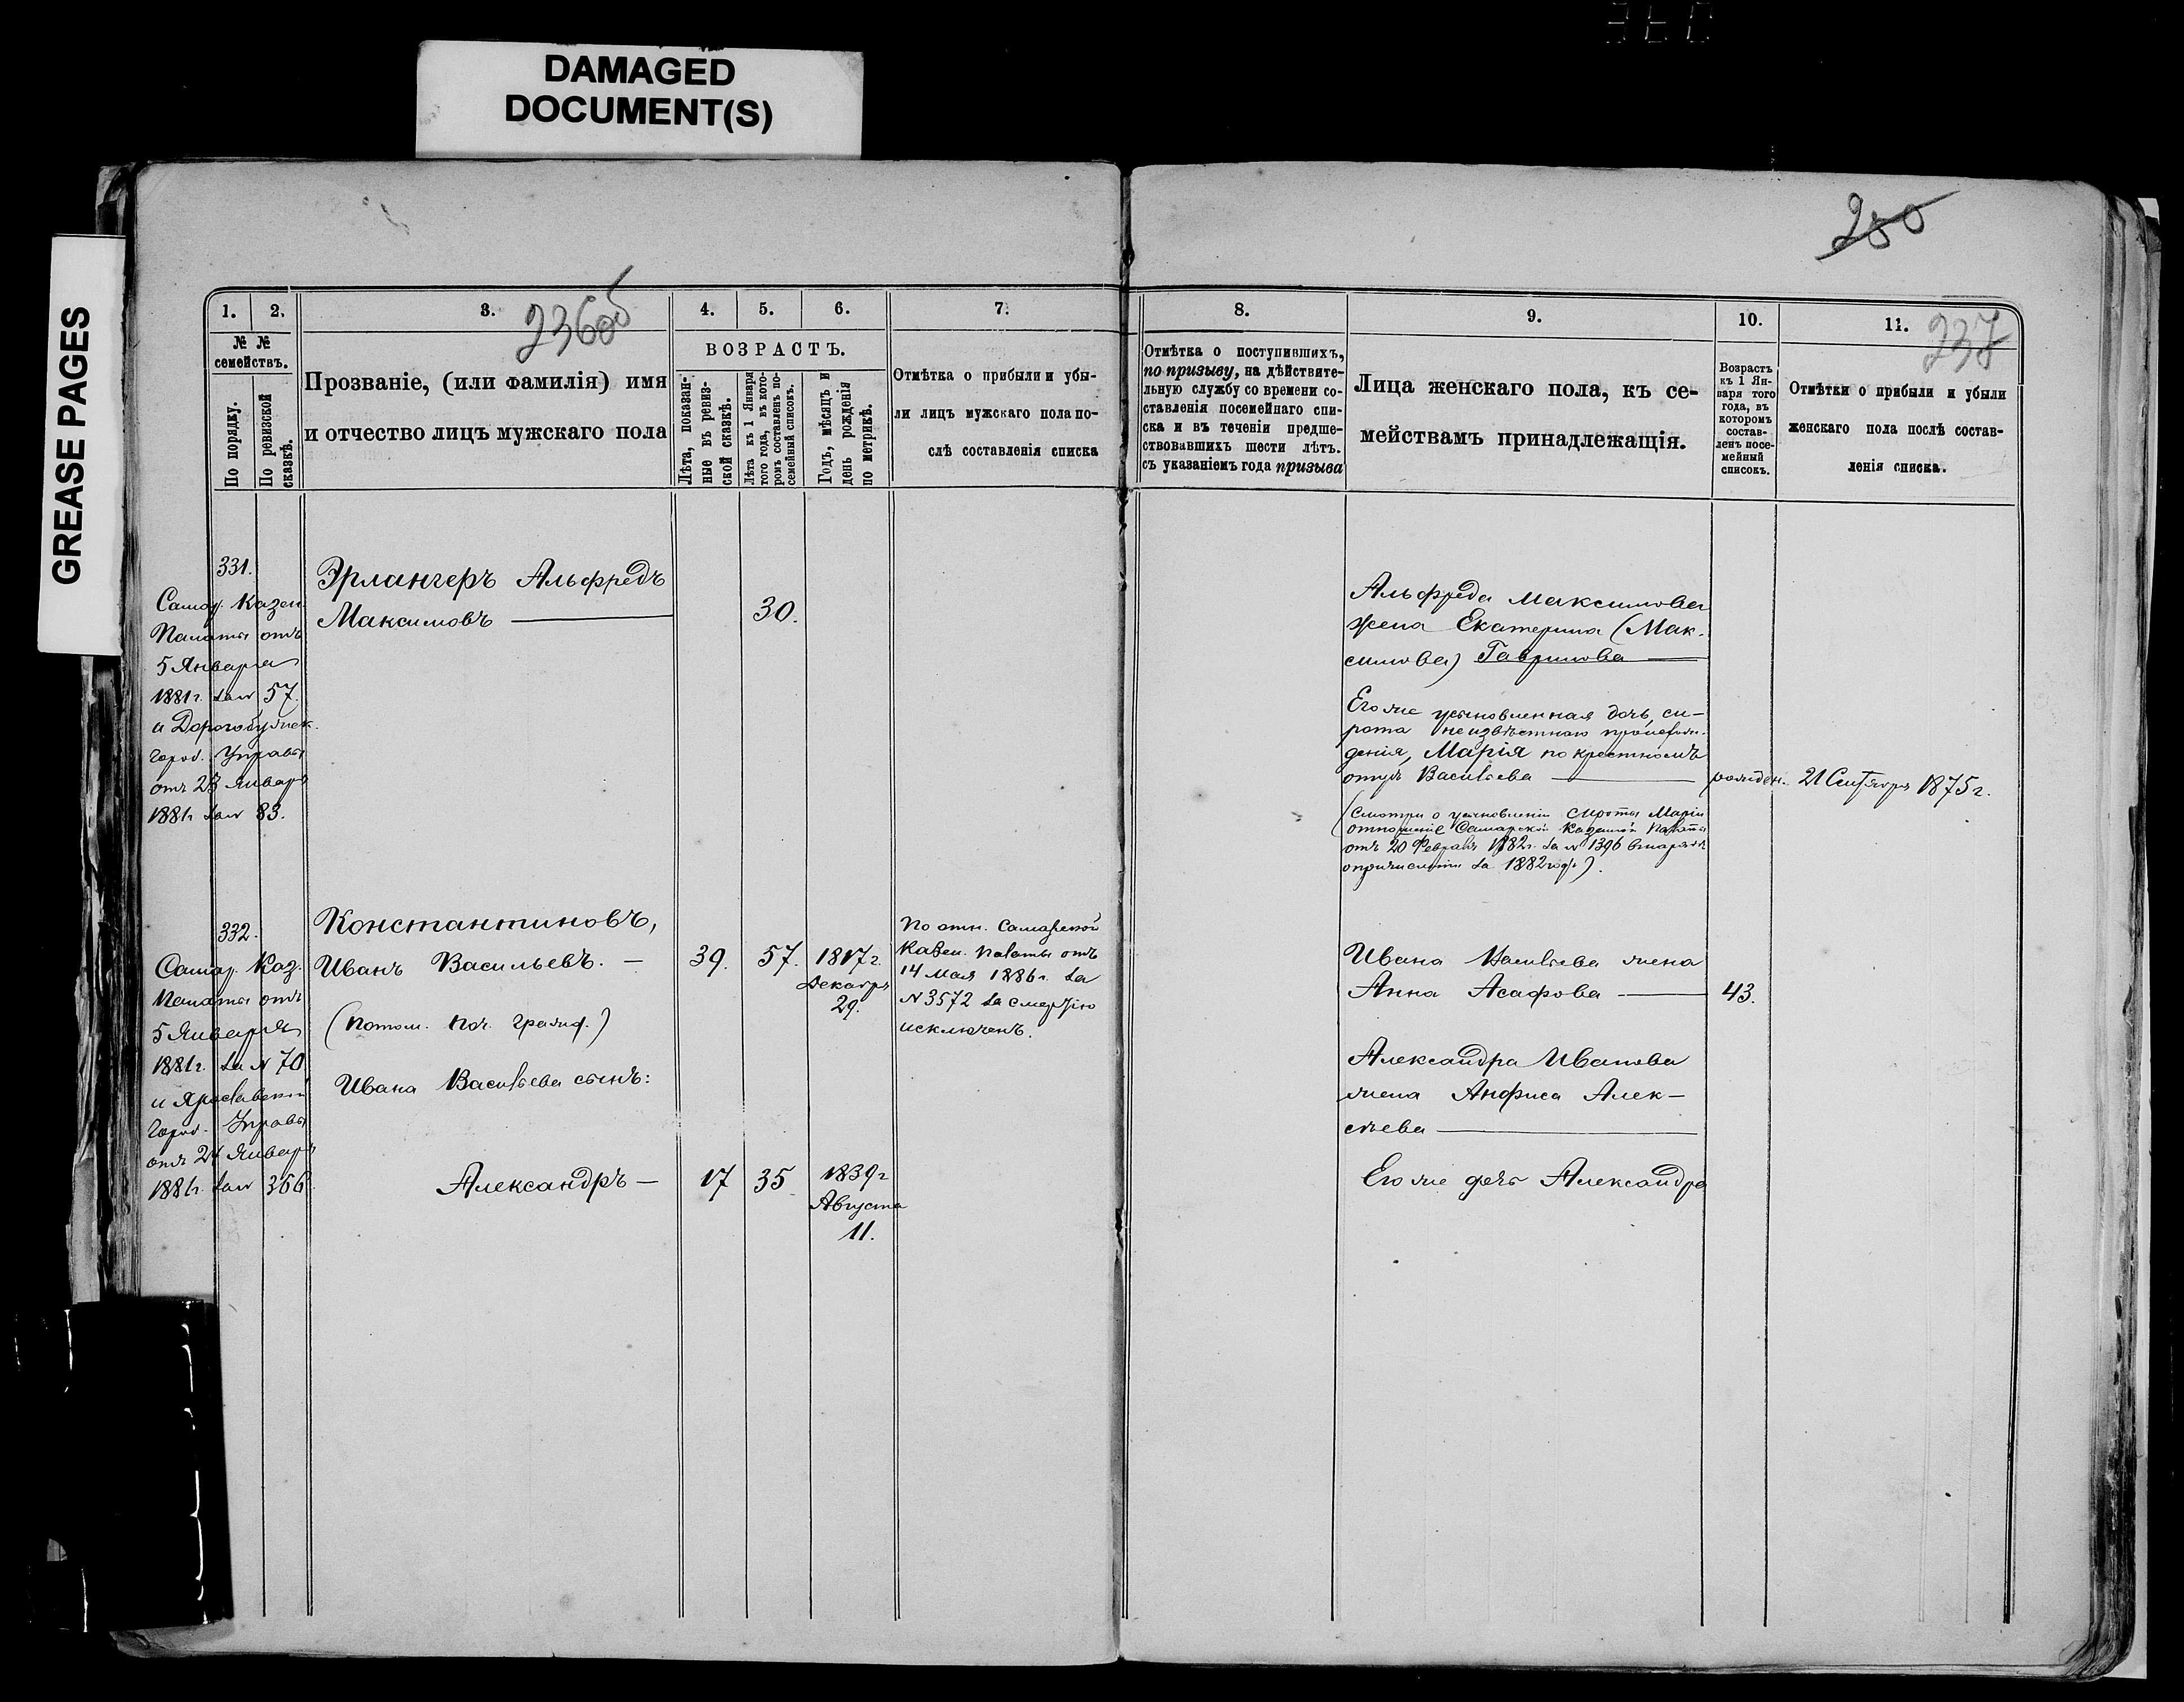 DAMAGED
DOCUMENT(S)
GREASE PAGES
250
236об
237
1.
2.
3.
4.
5.
6.
7.
№ №
семействъ.
По порядку.
По ревизской
сказкѣ.
Прозваніе, (или фамилія) имя
и отчество лицъ мужскаго пола
ВОЗРАСТЪ.
Лѣта, показан-
ные въ ревиз-
ской сказкѣ.
Лѣта къ 1 Января
того года, въ кото-
ромъ составленъ по-
семейный списокъ.
Годъ, мѣсяцъ и
день рожденія
по метрикѣ.
Отмѣтка о прибыли и убы-
ли лицъ мужскаго пола по-
слѣ составленія списка
331.
Самар. Казен.
Палаты отъ
5 Января
1881г. за № 57.
и Дорогобужск.
Город. Управы
отъ 23 Января
1881г. за № 83.
Эрлангеръ Альфредъ
Максимовъ
30.
332.
Самар. Каз.
Палаты отъ
5 Января
1881г. за № 70
и Ярославской
Город. Управы
отъ 24 Января
1881г. за № 366.
Константиновъ,
Иванъ Васильевъ. —
39.
57.
1817г.
Декабря
29.
По отн. Самарской
Казен. Палаты отъ
14 Мая 1886г. за
№ 3572 за смертію
исключенъ.
(Потом. Поч. Гражд.)
Ивана Васильева сынъ:
Александръ —
17
35
1839г
Августа
11.
8.
9.
10.
11.
Отмѣтка о поступившихъ,
по призыву, на дѣйствите-
льную службу со времени со-
ставленія посемейнаго спи-
ска и въ теченіи предше-
ствовавшихъ шести лѣтъ.
съ указаніемъ года призыва
Лица женскаго пола, къ се-
мействамъ принадлежащія.
Возрастъ
къ 1 Ян-
варя того
года, въ
которомъ
состав-
ленъ посе-
мейный
списокъ.
Отмѣтки о прибыли и убыли
женскаго пола послѣ состав-
ленія списка.
Альфреда Максимова
жена Екатерина (Мак-
симова) Гаврилова
Его же усыновленная дочь, си-
рота неизвѣстнаго происхож-
денія, Марія по крестному
отцу Васильева
рожден. 21 Сентября 1875г.
(Смотри о усыновленіи сироты Маріи
отношеніе Самарской Казенной Палаты
отъ 20 Февраля 1882г. за № 1396 въ нарядѣ
о причисленіи за 1882 годъ).
Ивана Васильева жена
Анна Асафова
43.
Александра Иванова
жена Анфиса Алек-
сѣева
Его же дочь Александра